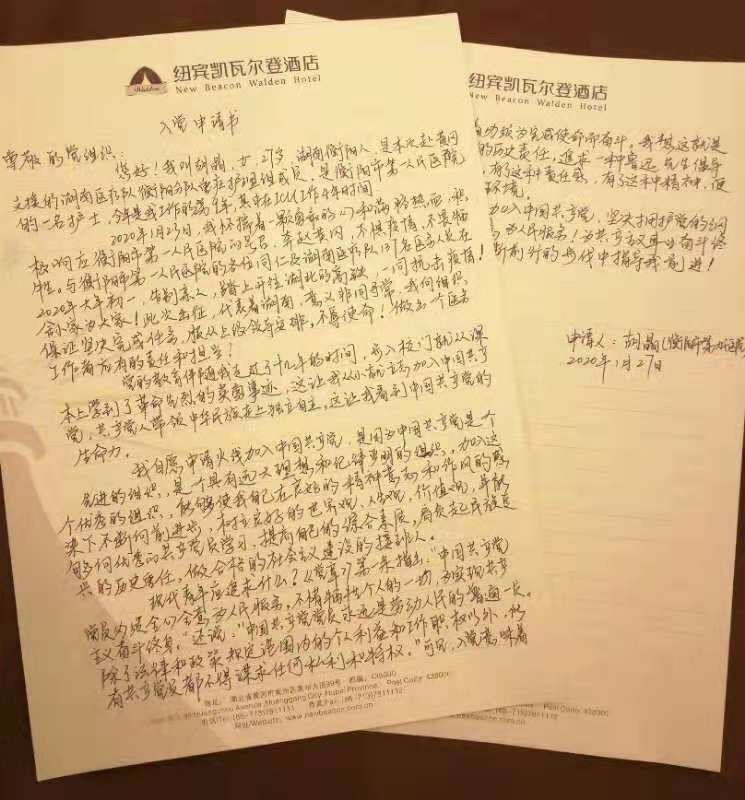 纽宾凯瓦尔登酒店
New Beacon Walden Hotel
Walden
入党申请书
尊敬的党组织：
您好！我叫胡晶，女，27岁，湖南衡阳人，是本次赴黄冈
支援的湖南医疗队衡阳分队重症护理组成员，是衡阳市第一人民医院
的一名护士，今年是我工作的第9年，其中在ICU工作4年时间
2020年1月25日，我怀揣着一颗勇敢的心和满腔热血，积
极响应衡阳市第一人民医院的号召，奔赴黄冈，不惧疫情，不畏牺
牲，与衡阳市第一人民医院的各位同仁及湖南医疗队137名医务人员在
2020大年初一，告别亲人，踏上开往湖北的高铁，一同抗击疫情！
舍小家为大家！此次出征，代表着湖南，意义非同寻常，我向组织
保证坚决完成任务，服从上级领导安排，不辱使命！做出一个医务
工作者应有的责任和担当！
党的教育伴随我走过了十几年的时间，步入校门就从课
本上学到了革命先烈的英勇事迹，这让我从小就立志加入中国共产
党，共产党人带领中华民族走上独立自主，这让我看到中国共产党的
生命力。
我自愿申请火线加入中国共产党，是因为中国共产党是个
先进的组织，是个具有远大理想和纪律严明的组织，加入这
个优秀的组织，能够使我自己在良好的精神意志和作风的感
染下不断向前进步，树立良好的世界观，人生观，价值观，并能
够向优秀的共产党员学习，提高自己的综合素质，肩负起民族复
兴的历史责任，做合格的社会主义建设的接班人。
现代青年应追求什么？《党章》第一条指出：“中国共产党
党员必须全心全意为人民服务，不惜牺牲个人的一切，为实现共产
主义奋斗终身。”还说：“中国共产党党员永远是劳动人民的普通一员。
除了法律和政策规定范围内的个人利益和工作职权以外，所
有共产党员都不得谋求任何私利和特权。”可见，入党意味着
地址：湖北省黄冈市黄州区黄州大道99号 邮编：438000
Huangzhou Avenue, Huanggang City, Hubei Province Post Code: 438000
网址/Website: www.newbeacon.com.cn
纽宾凯瓦尔登酒店
New Beacon Walden Hotel
必须为完成使命而奋斗。我想这就是
的历史责任，追求一种鲁迅先生倡导
，有了这种责任感，有了这种精神，便
环境。
加入中国共产党，坚决拥护党的纲
为人民服务！为共产主义事业奋斗终
断前行的时代中指导我前进！
申请人：胡晶（衡阳市第一人民医院
2020年1月27日
Post Code: 438000